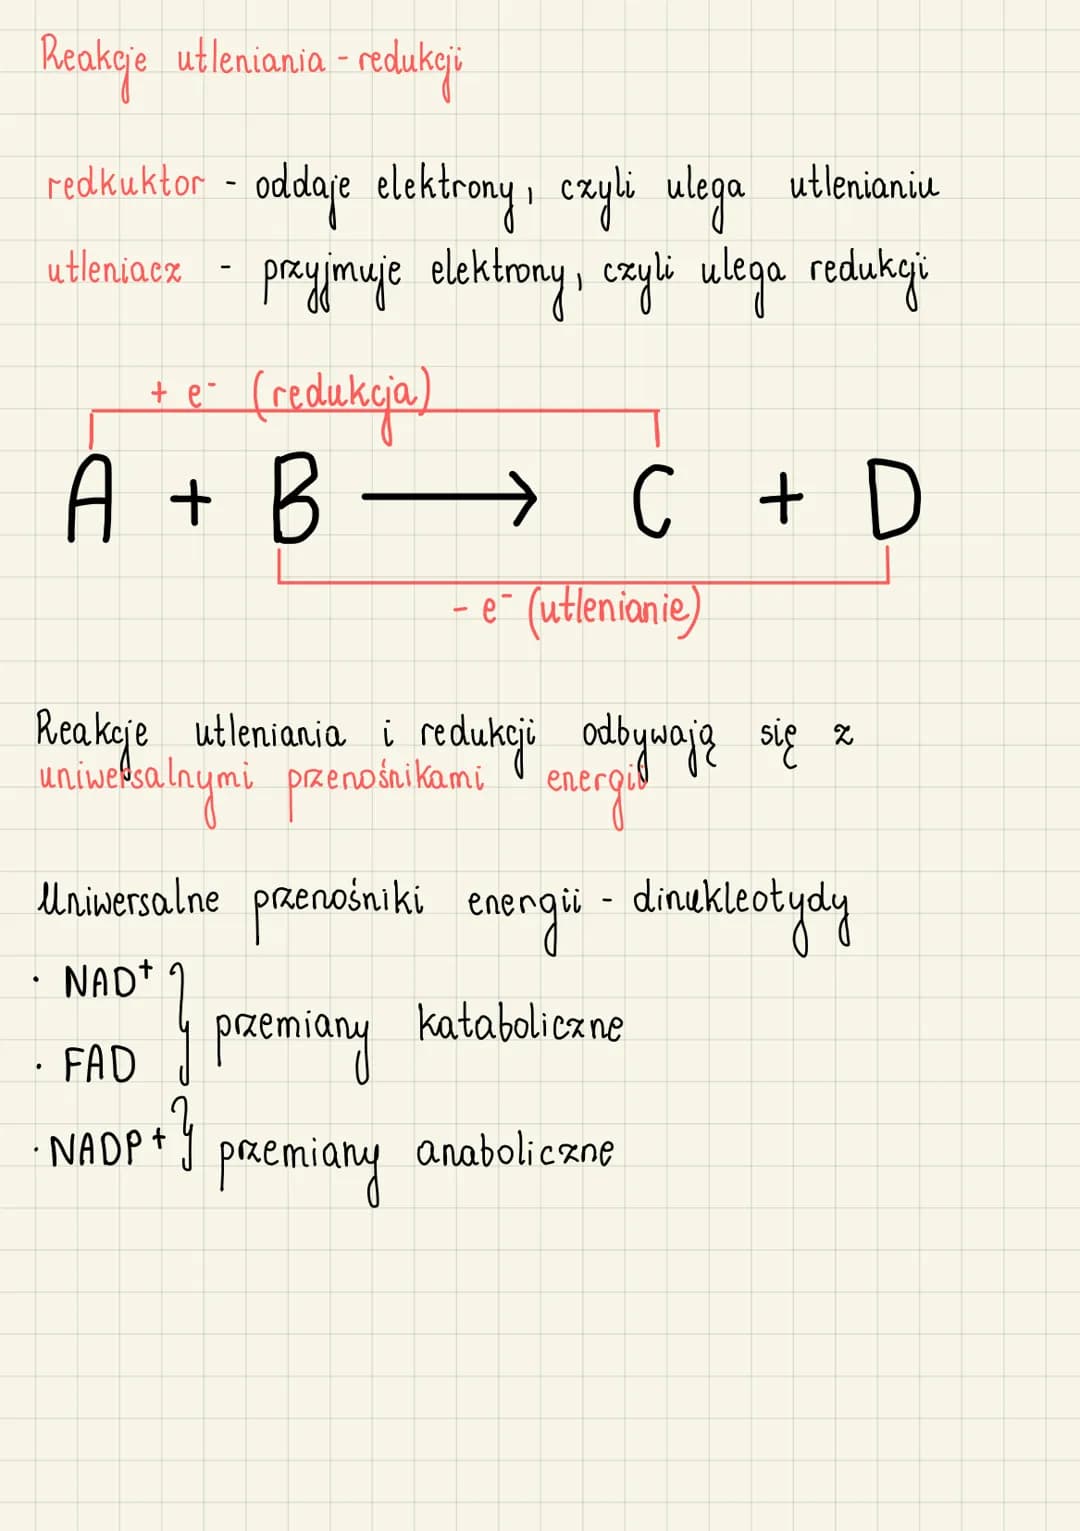 Reakcje utleniania - redukcji
redkuktor - oddaje elektrony, czyli ulega utlenianiu
utleniacz - przyjmuje elektrony, czyli ulega redukcji
+ e⁻ (redukcja)
A + B ⟶ C + D
- e⁻ (utlenianie)
Reakcje utleniania i redukcji odbywają się z
uniwersalnymi przenośnikami energii
Uniwersalne przenośniki energii - dinukleotydy
· NAD⁺
przemiany kataboliczne
· FAD
· NADP+ } przemiany anaboliczne